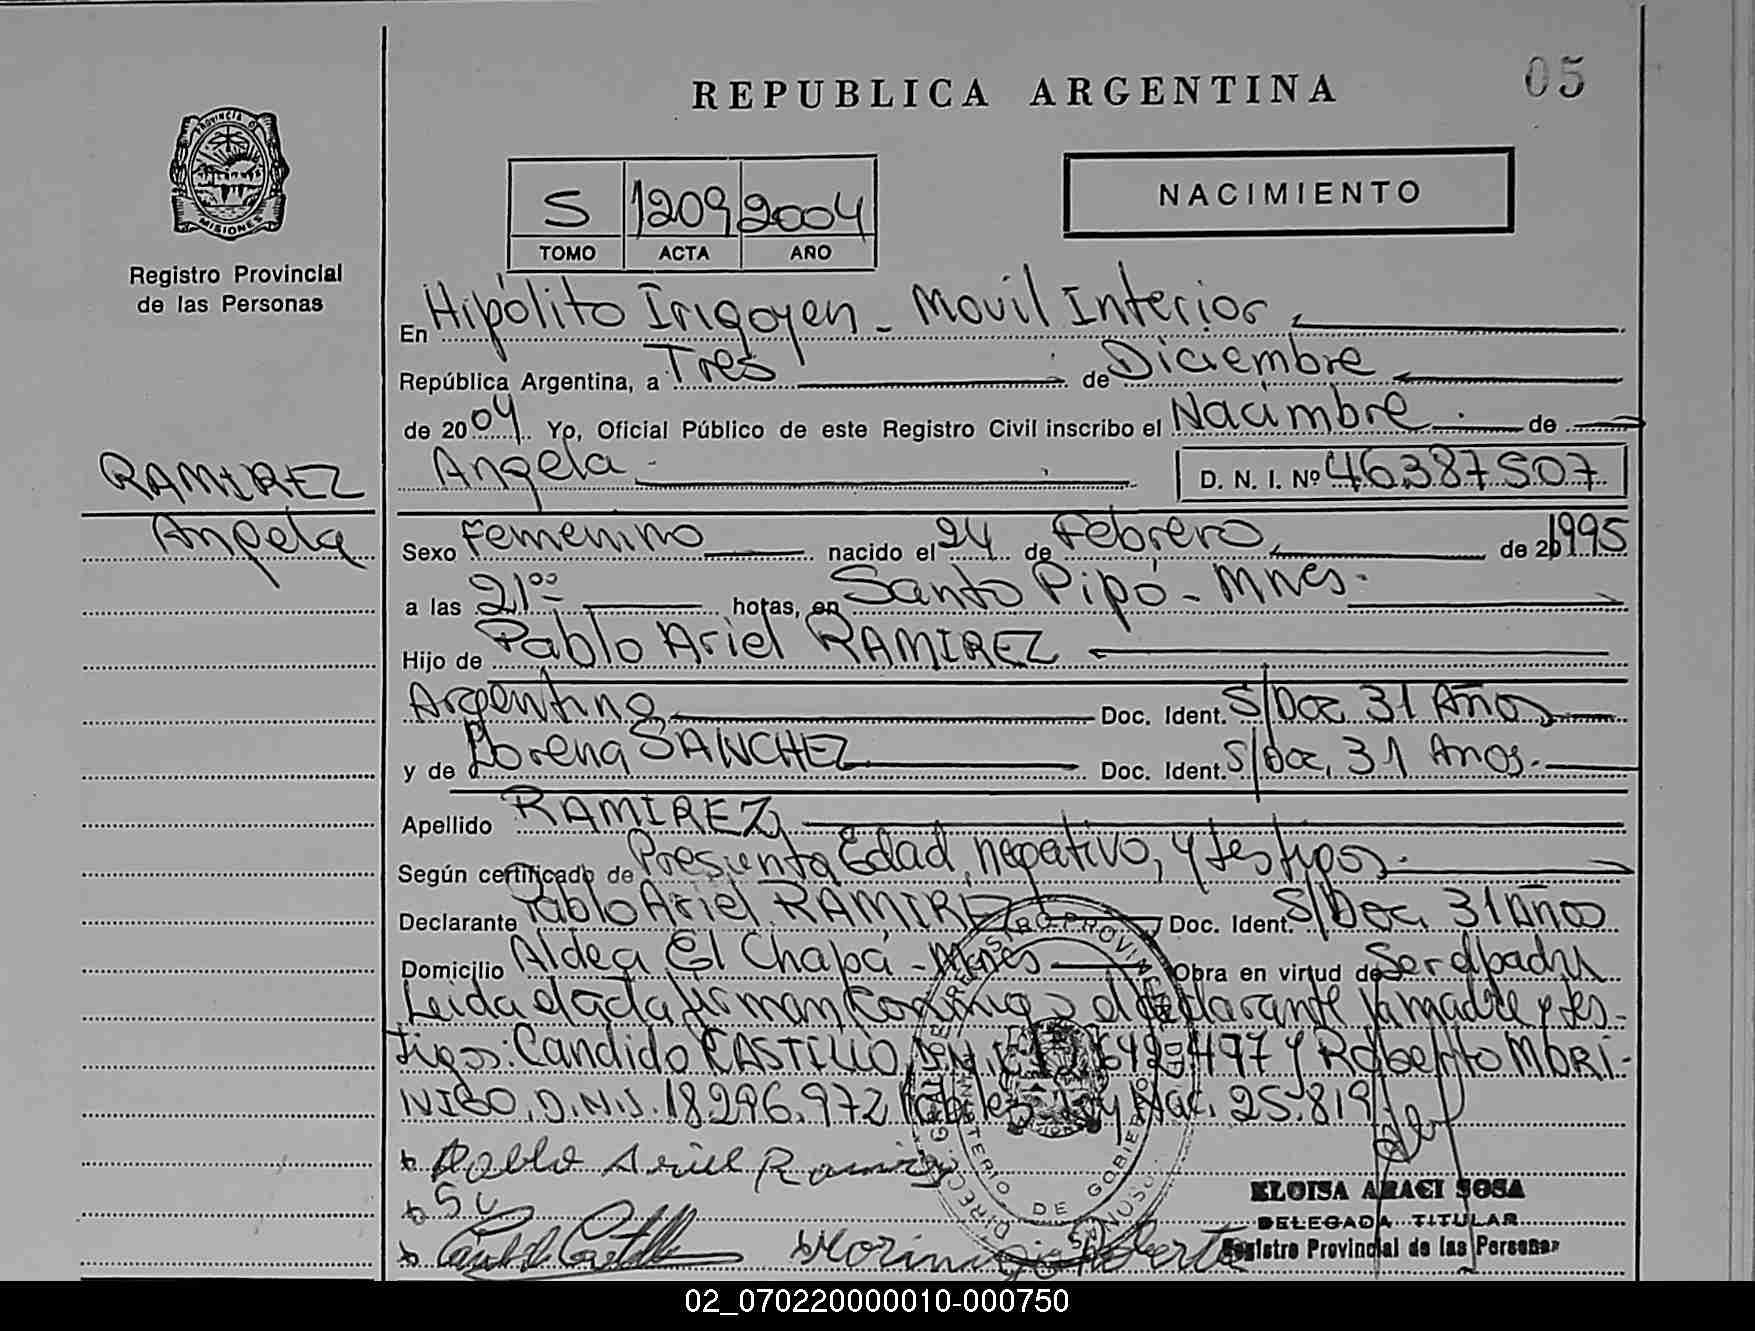 05
REPUBLICA ARGENTINA
NACIMIENTO
S 1209 2004
TOMO ACTA AÑO
PROVINCIA DE
MISIONES
Registro Provincial
de las Personas
En Hipólito Irigoyen - Movil Interior
República Argentina, a Tres de Diciembre
de 2004. Yo, Oficial Público de este Registro Civil inscribo el Nacimbre de
Angela D. N. I. Nº 46387507
RAMIREZ
Angela
Sexo Femenino nacido el 24 de Febrero de 1995
a las 21⁰⁰ horas, en Santo Pipó - Mnes.
Hijo de Pablo Ariel RAMIREZ
Argentino Doc. Ident. S/Doc. 31 Años
y de Lorena SANCHEZ Doc. Ident. S/Doc. 31 Anos.
Apellido RAMIREZ
Según certificado de Presunta Edad, negativo, y testigos.
Declarante Pablo Ariel RAMIREZ Doc. Ident. S/Doc. 31 Años
Domicilio Aldea El Chapá - Mnes Obra en virtud de Ser el padre
Leida el acta firman conmigo el declarante la madre y tes-
tigos: Candido CASTILLO D.N.I. 12.642.497 y Roberto MORI-
NIGO. D.N.I. 18.296.972 Ley Nac. 25.819
Pablo Ariel Ramirez
ELOISA ARACI SOSA
DELEGADA TITULAR
Registro Provincial de las Personas
Morinigo Roberto
02_070220000010-000750